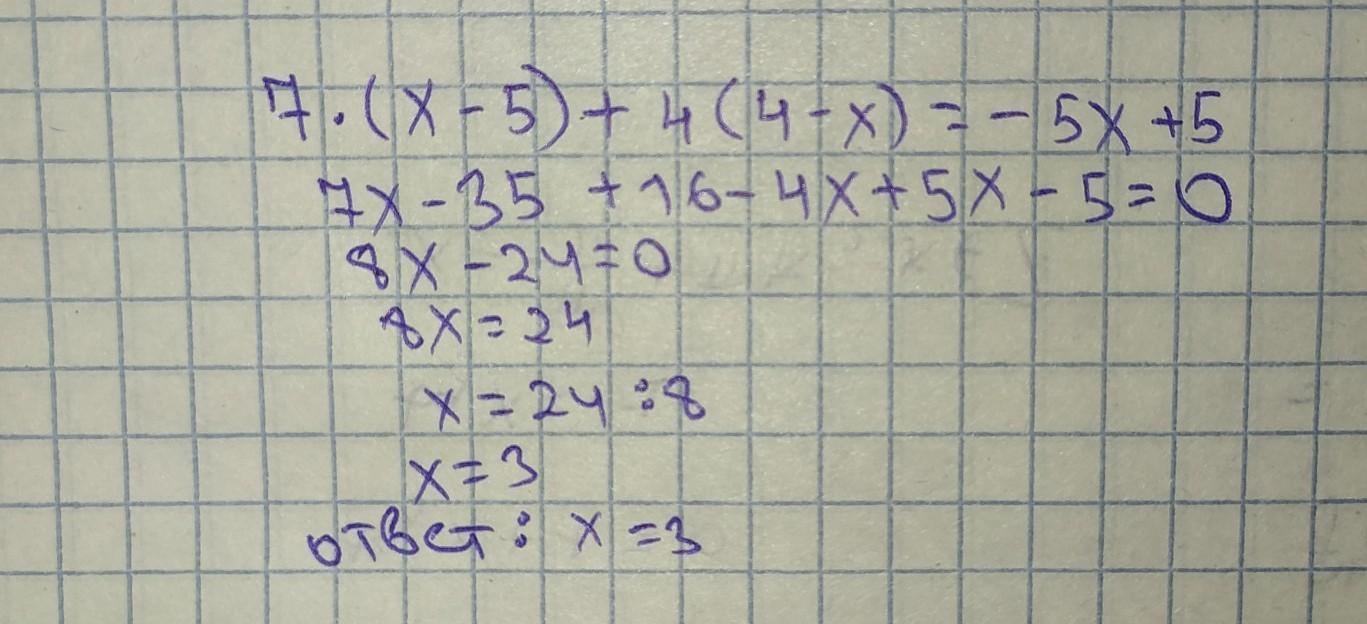 7·(x-5)+4(4-x)=-5x+5
7x-35+16-4x+5x-5=0
8x-24=0
8x=24
x=24:8
x=3
ответ: x=3